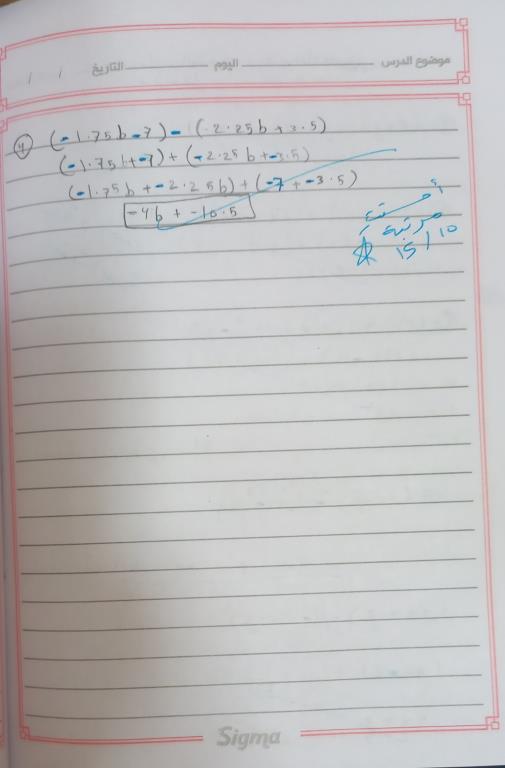 موضوع الدرس اليوم التاريخ / /
4 (-1.75b-7)-(2.25b+3.5)
(-1.75b+-7)+(-2.25b+-3.5)
(-1.75b+-2.25b)+(-7+-3.5)
-4b+-10.5
أحسنتِ
مرتبة
15/10
Sigma